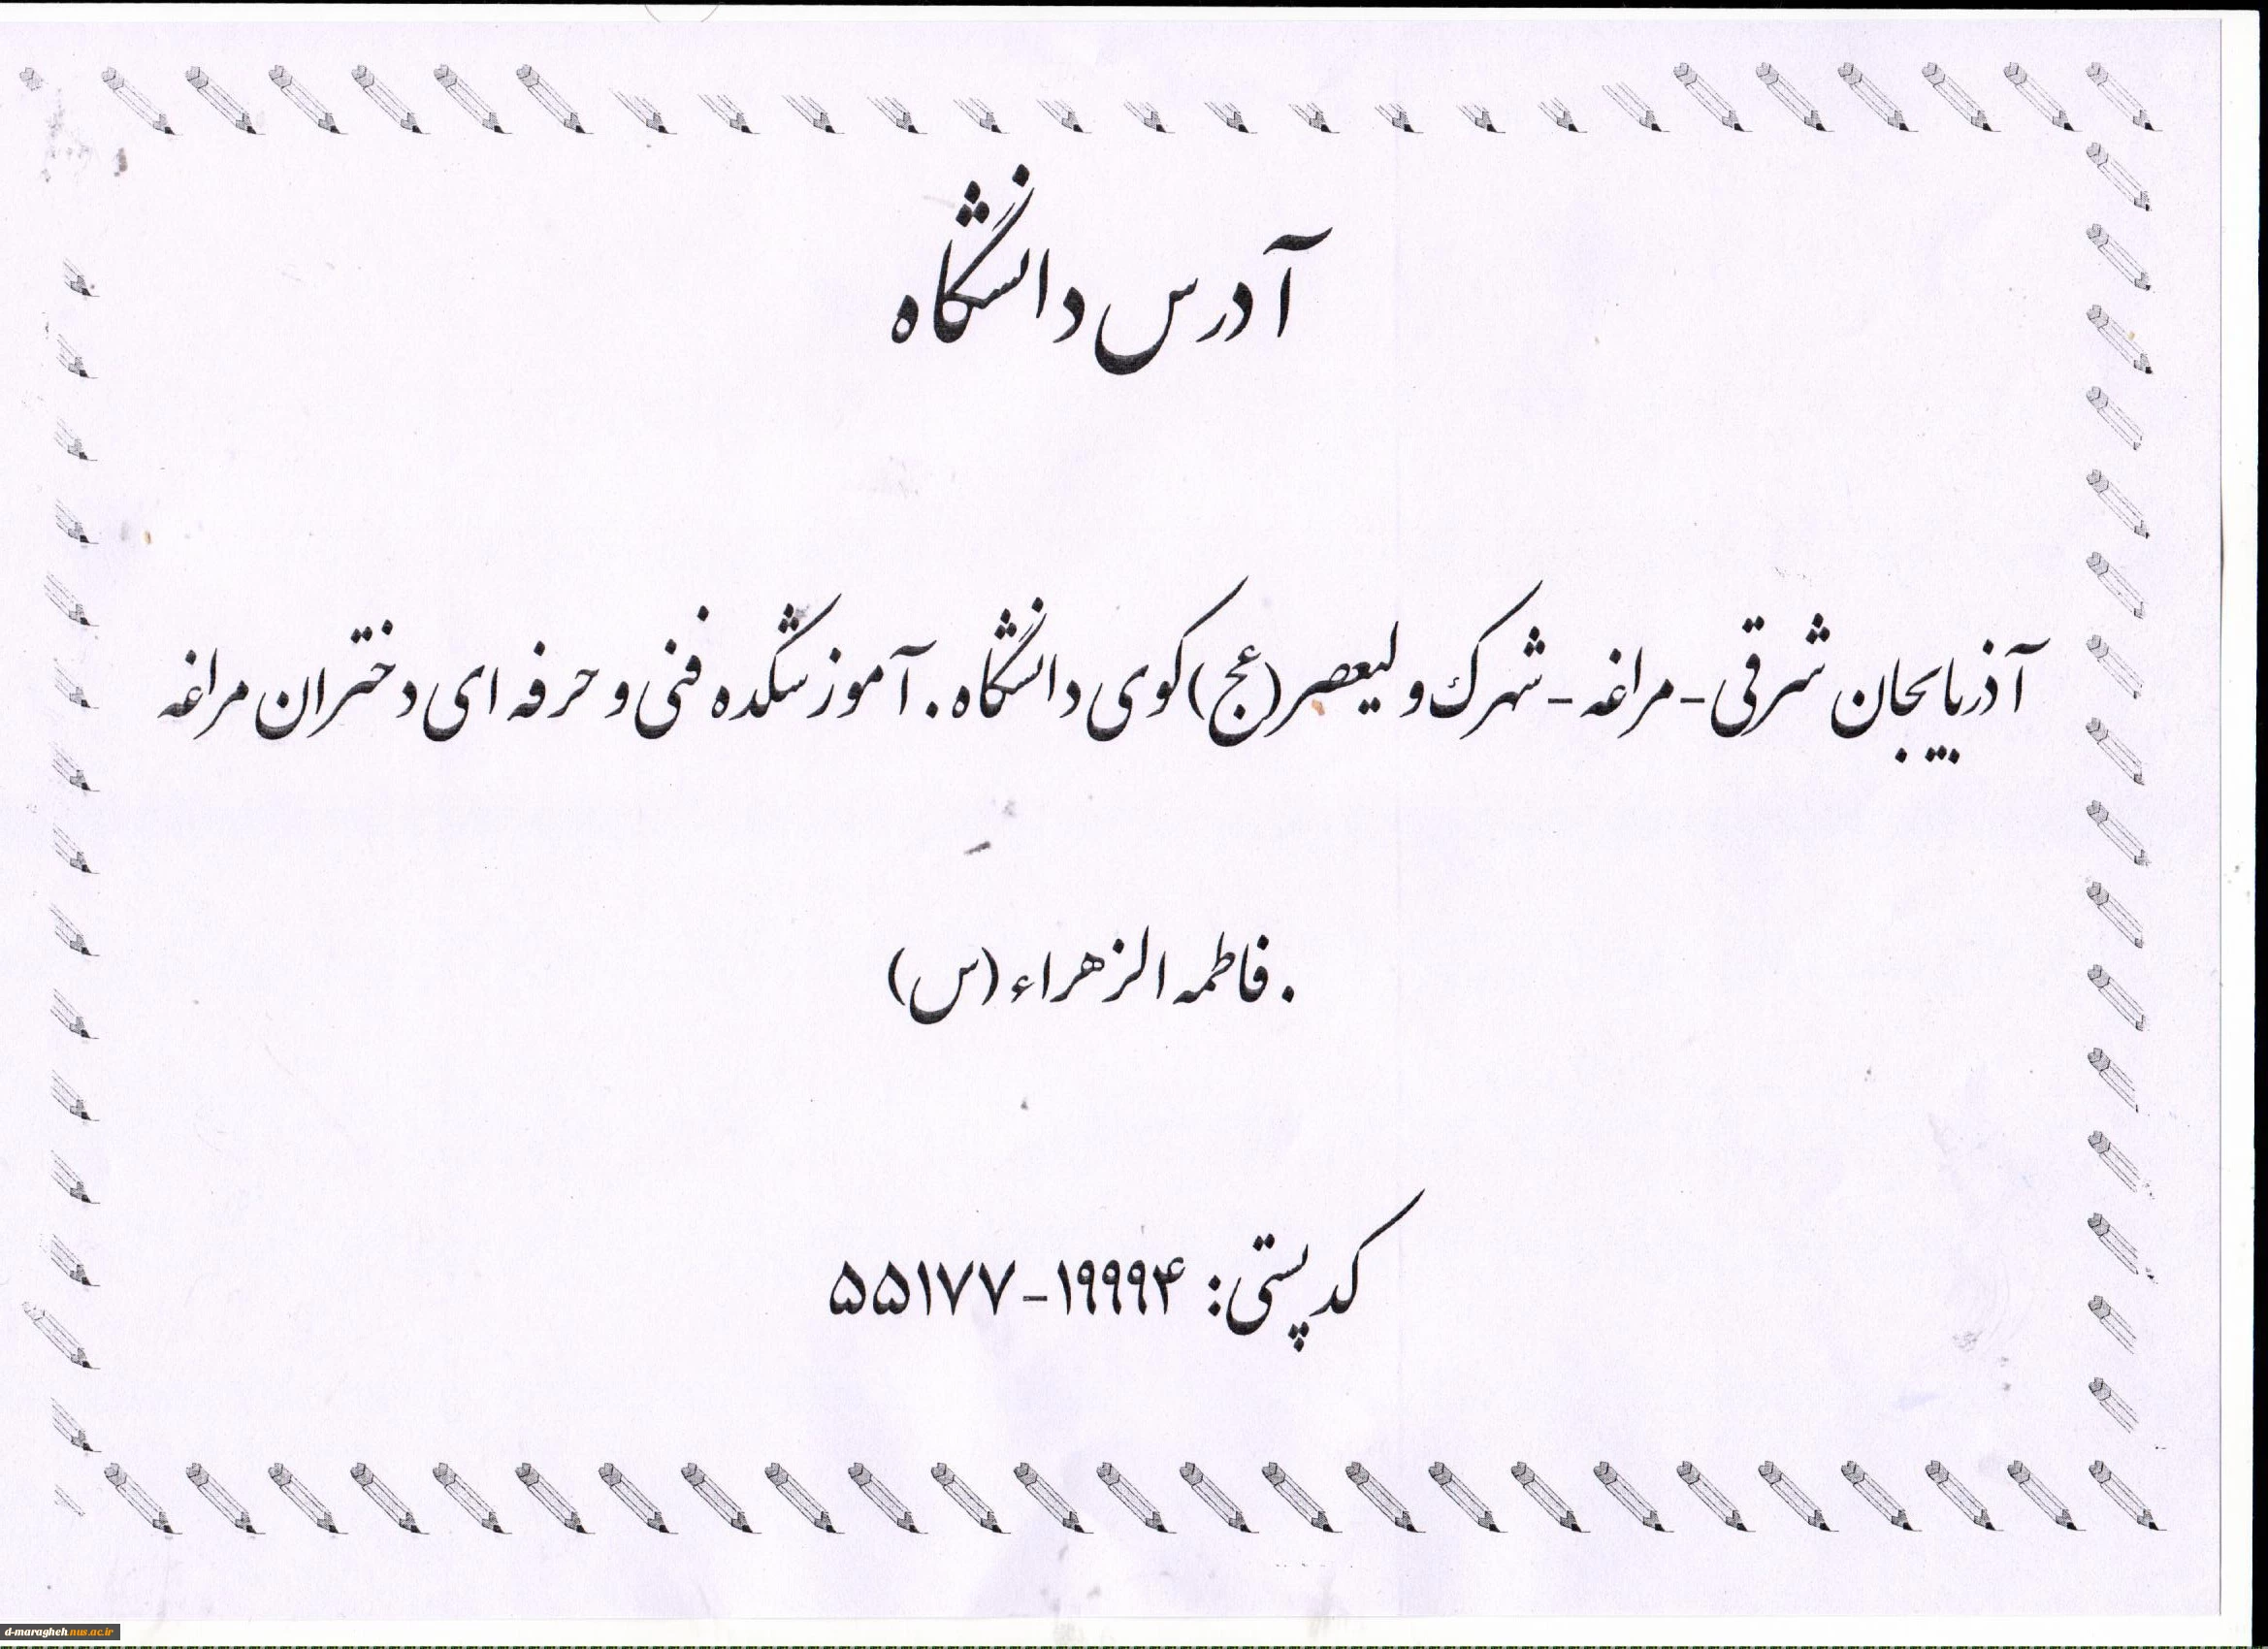 آدرس دانشگاه
آذربایجان شرقی - مراغه - شهرک ولیعصر (عج) کوی دانشگاه . آموزشکده فنی و حرفه ای دختران مراغه
. فاطمه الزهراء (س)
کد پستی: ۱۹۹۹۴-۵۵۱۷۷
d-maragheh.nus.ac.ir